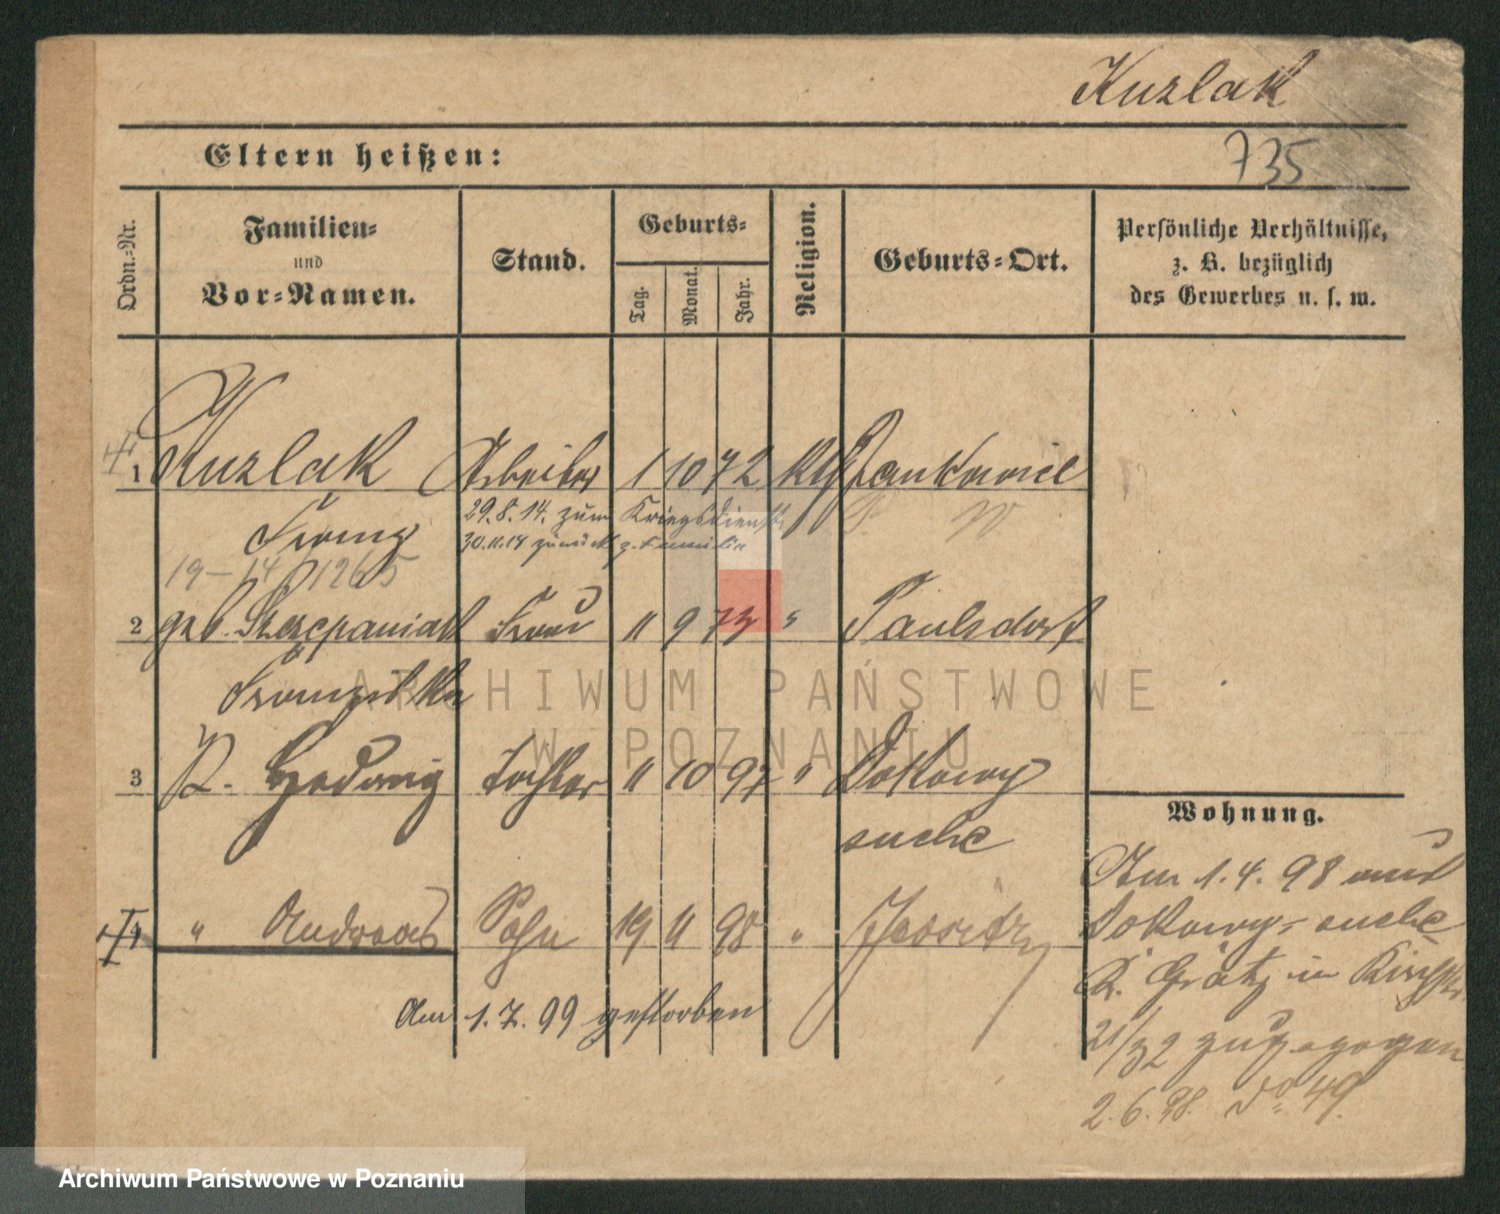 Kuzlak
Eltern heißen:
735
Ordn.-Nr.
Familien-
und
Vor-Namen.
Stand.
Geburts-
Tag.
Monat.
Jahr.
Religion.
Geburts-Ort.
Persönliche Verhältnisse,
z. B. bezüglich
des Gewerbes u. s. w.
1 Kuzlak Arbeiter 1 10 72 kth Jankowice
29.8.14. zum Kriegsdienst
Franz
30.11.14 zurück z. Familie
19-14/1265
2 geb. Szczepaniak Frau " 9 73 " Paulsdorf
Franziska
3 K. Hedwig Tochter " 10 97 " Dokowy
suche
Wohnung.
Am 1.4.98 aus
Dokowy-suche
4 " Andreas Sohn 19 11 98 " Jersitz
K. Grätz in Kirchstr.
21/32 zugezogen
Am 1.7.99 gestorben
2.6.98. do 49.
ARCHIWUM PAŃSTWOWE
W POZNANIU
Archiwum Państwowe w Poznaniu